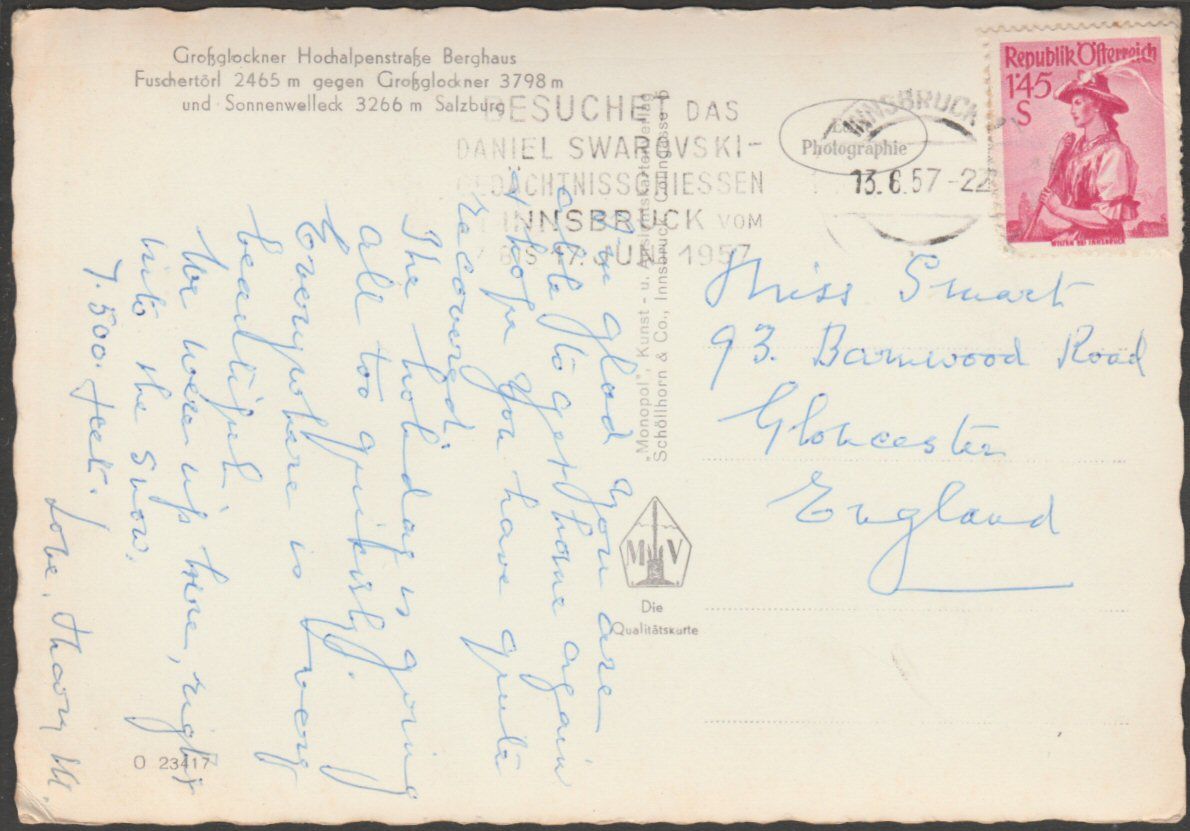 Großglockner Hochalpenstraße Berghaus
Fuschertörl 2465 m gegen Großglockner 3798 m
und Sonnenwelleck 3266 m Salzburg
BESUCHET DAS
DANIEL SWAROVSKI-
GEDÄCHTNISSCHIESSEN
INNSBRUCK VOM
BIS 17. JUNI 1957
INNSBRUCK
13.6.57-22
Photographie
Republik Österreich
1'45
S
WILTEN BEI INNSBRUCK
So glad you are
able to get home again
I hope you have quite
recovered.
The holiday is going
all too quickly.
Everywhere is very
beautiful.
We were up here, right
into the snow.
7.500. feet.
Love,
M.
"Monopol", Kunst- u. Ansichtskartenverlag
Schöllhorn & Co., Innsbruck,
Miss Smart
93. Barnwood Road
Gloucester
England
M V
Die
Qualitätskarte
O 23417